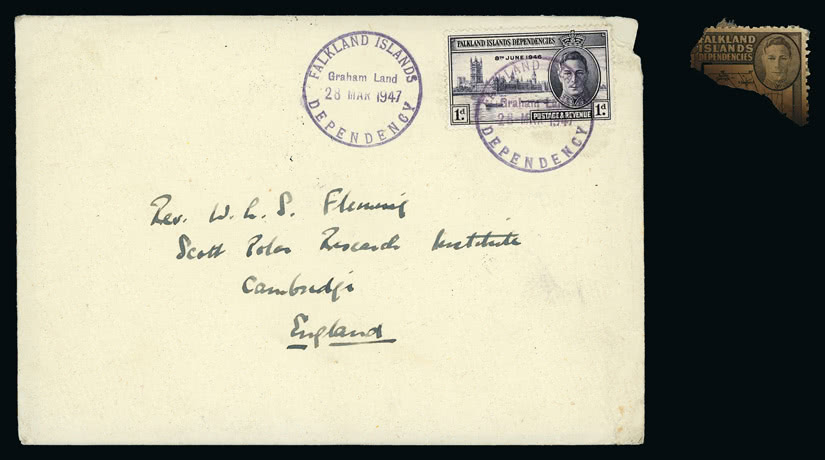 FALKLAND ISLANDS
Graham Land
28 MAR 1947
DEPENDENCY
FALKLAND ISLANDS DEPENDENCIES
8TH JUNE 1946
1d
1d
POSTAGE & REVENUE
ISLAND
Graham La
28 MAR 1947
DEPENDENCY
FALKLAND
ISLANDS
DEPENDENCIES
Rev. W. L. S. Fleming
Scott Polar Research Institute
Cambridge
England